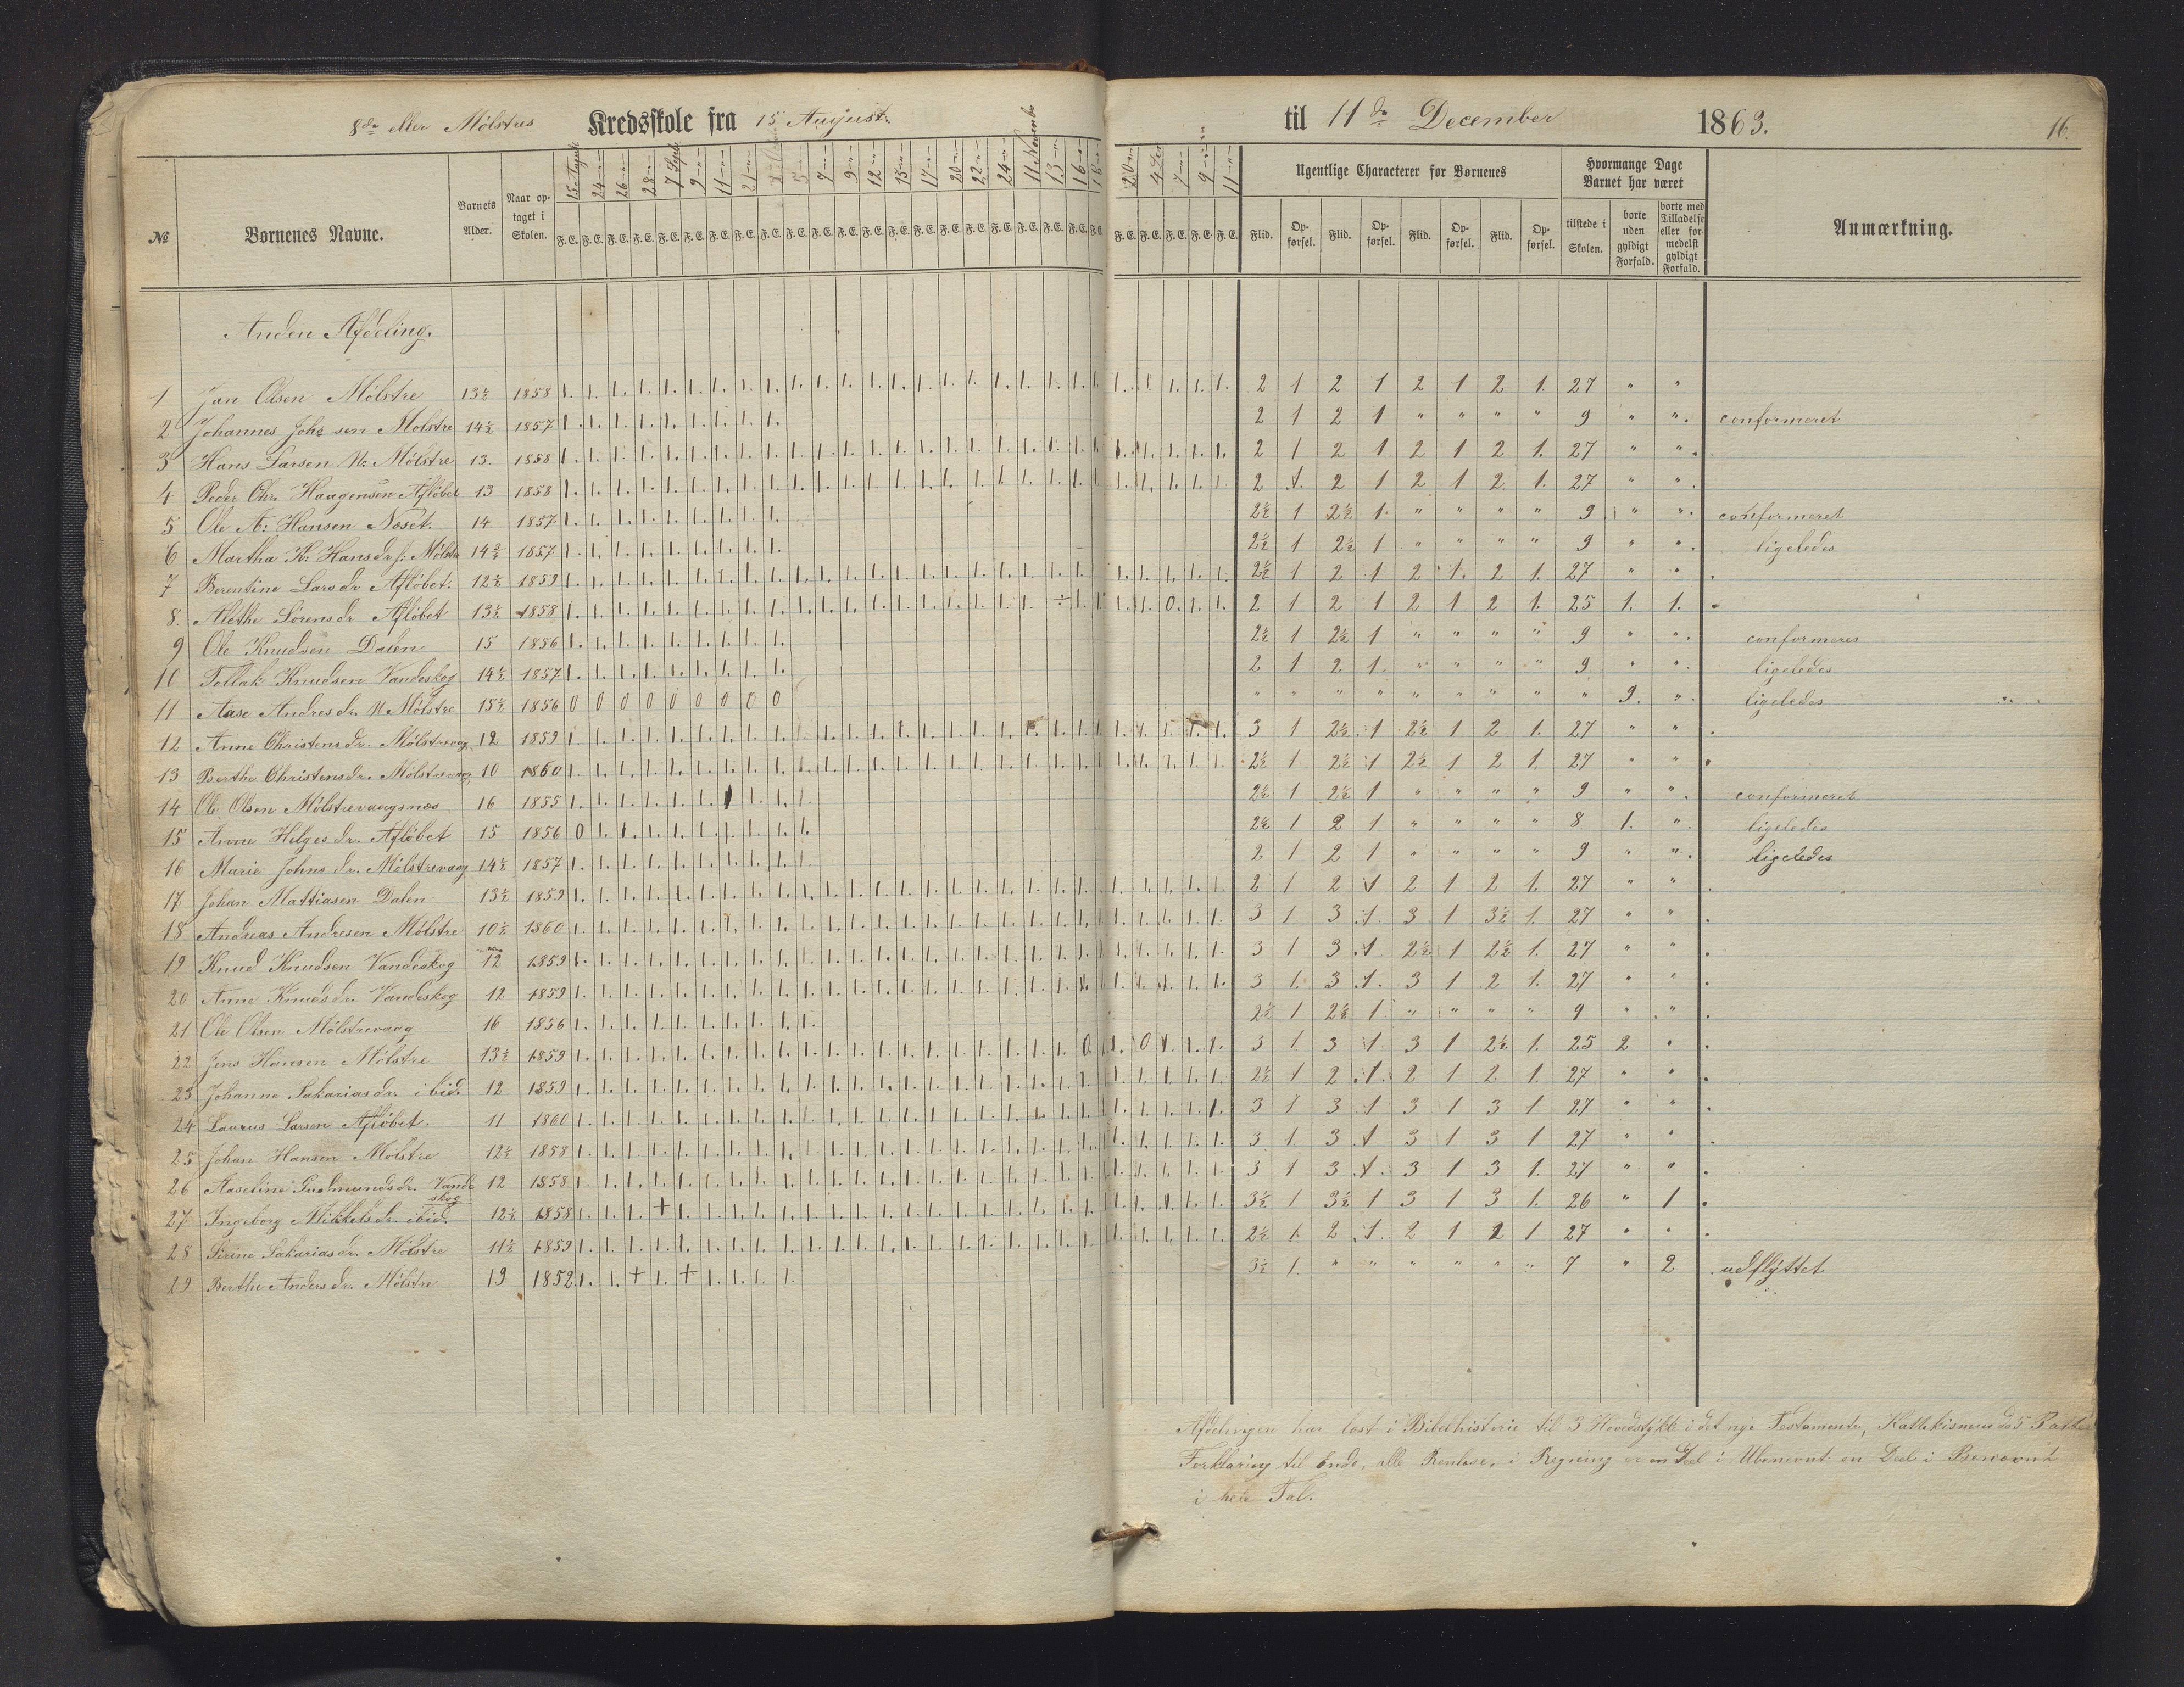 8de eller Mølstres Kredsskole fra 15 August til 11te December 1863. 16.
№ Børnenes Navne. Barnets Alder. Naar optaget i Skolen. Ugentlige Characterer for Børnenes Hvormange Dage Barnet har været Anmærkning.
15 August 24 26 28 7 Sept 9 11 21 5 7 9 12 15 17 20 22 24 11 November 13 16 18 20 4 Dec 7 9 11
F. E. F. E. F. E. F. E. F. E. F. E. F. E. F. E. F. E. F. E. F. E. F. E. F. E. F. E. F. E. F. E. F. E. F. E. F. E. F. E. F. E. F. E. F. E. F. E. F. E. F. E.
Flid. Opførsel. Flid. Opførsel. Flid. Opførsel. Flid. Opførsel. tilstede i Skolen. borte uden gyldigt Forfald. borte med Tilladelse eller formedelst gyldigt Forfald.
Anden Afdeling.
1 Jan Olsen Mølstre 13½ 1858 2 1 2 1 2 1 2 1. 27 " "
2 Johannes Johs sen Mølstre 14½ 1857 2 1 2 1 " " " " 9 " " conformeret
3 Hans Larsen N: Mølstre 13. 1858 2 1 2 1 2 1 2 1. 27 " "
4 Peder Chr. Haagensen Afløbet 13 1858 2 1. 2 1 2 1 2 1. 27 " "
5 Ole A: Hansen Næset. 14 1857 2½ 1 2½ 1 " " " " 9 " " conformeret
6 Martha K: Hansdr Mølstre 1857 2½ 1 2½ 1 " " " " 9 " " ligeledes
7 Berentine Larsdr Afløbet. 12½ 1859 2½ 1 2 1 2 1. 2 1. 27 " "
8. Alethe Sørensdr Afløbet 13½ 1858 2 1 2 1 2 1 2 1. 25 1. 1.
9 Ole Knudsen Dalen 15 1856 2½ 1 2½ 1 " " " " 9 " " conformeres
10 Tollak Knudsen Vandeskog 14½ 1857 2 1 2 1. " " " " 9 " " ligeledes
11 Aase Andresdr. N Mølstre 15½ 1856 0 0 0 0 0 0 0 0 0 " " " " " " " " " 9. " ligeledes
12 Anne Christensdr. Mølstrevaag 12 1859 3 1 2½ 1 2½ 1 2 1. 27 " "
13 Berthe Christensdr. Mølstrevaag 10 1860 2½ 1 2½ 1 2½ 1 2 1. 27 " "
14 Ole Olsen Mølstrevaagsnæs 16 1855 2½ 1 2½ 1 " " " " 9 " " conformeret
15 Anne Helgesdr. Afløbet 15 1856 2½ 1 2 1 " " " " 8 1. " ligeledes
16 Marie Johnsdr. Mølstrevaag 14½ 1857 2 1 2 1 " " " " 9 " " ligeledes
17 Johan Mattiasen Dalen 13½ 1859 2 1 2 1 2 1 2 1. 27 " "
18 Andreas Andresen Mølstre 10½ 1860 3 1 3 1. 3 1 3½ 1. 27 " "
19 Knud Knudsen Vandeskog 12 1859 3 1 3 1 2½ 1 2½ 1. 27 " "
20 Anne Knudsdr. Vandeskog 12 1859 3 1. 3 1. 3 1 2 1. 27 " "
21 Ole Olsen Mølstrevaag 16 1856 2½ 1 2½ 1 " " " " 9 " "
22 Jens Hansen Mølstre 13½ 1859 3 1 3 1 3 1 2½ 1. 25 2 "
23 Johanne Sakariasdr. ibid. 12 1859 2½ 1 2 1. 2 1 2 1. 27 " "
24 Laurus Larsen Afløbet. 11 1860 3 1 3 1 3 1 3 1 27 " "
25 Johan Hansen Mølstre 12½ 1858 3 1 3 1 3 1 3 1 27 " "
26 Aaseline Gudmundsdr. Vandeskog 12 1858 3 1 3 1. 3 1 3 1. 27 " "
27 Ingeborg Mikkelsdr. ibid. 12½ 1858 3½ 1 3½ 1 3 1 3 1. 26 " 1
28 Serine Sakariasdr. Mølstre 11½ 1859 2½ 1. 2 1. 2 1 2 1 27 " "
29 Berthe Andersdr. Mølstre 19 1852 3½ 1. " " " " " " 7 " 2 udflyttet
Afdelingen har læst i Bibelhistorie til 3 Hovedstykke i det nye Testamente, Kattekismus de 5 Parter
Forklaring til Ende, alle Renlæse, i Regning er en Deel i Ubenevnt en Deel i Benevnt
i hele Tal.